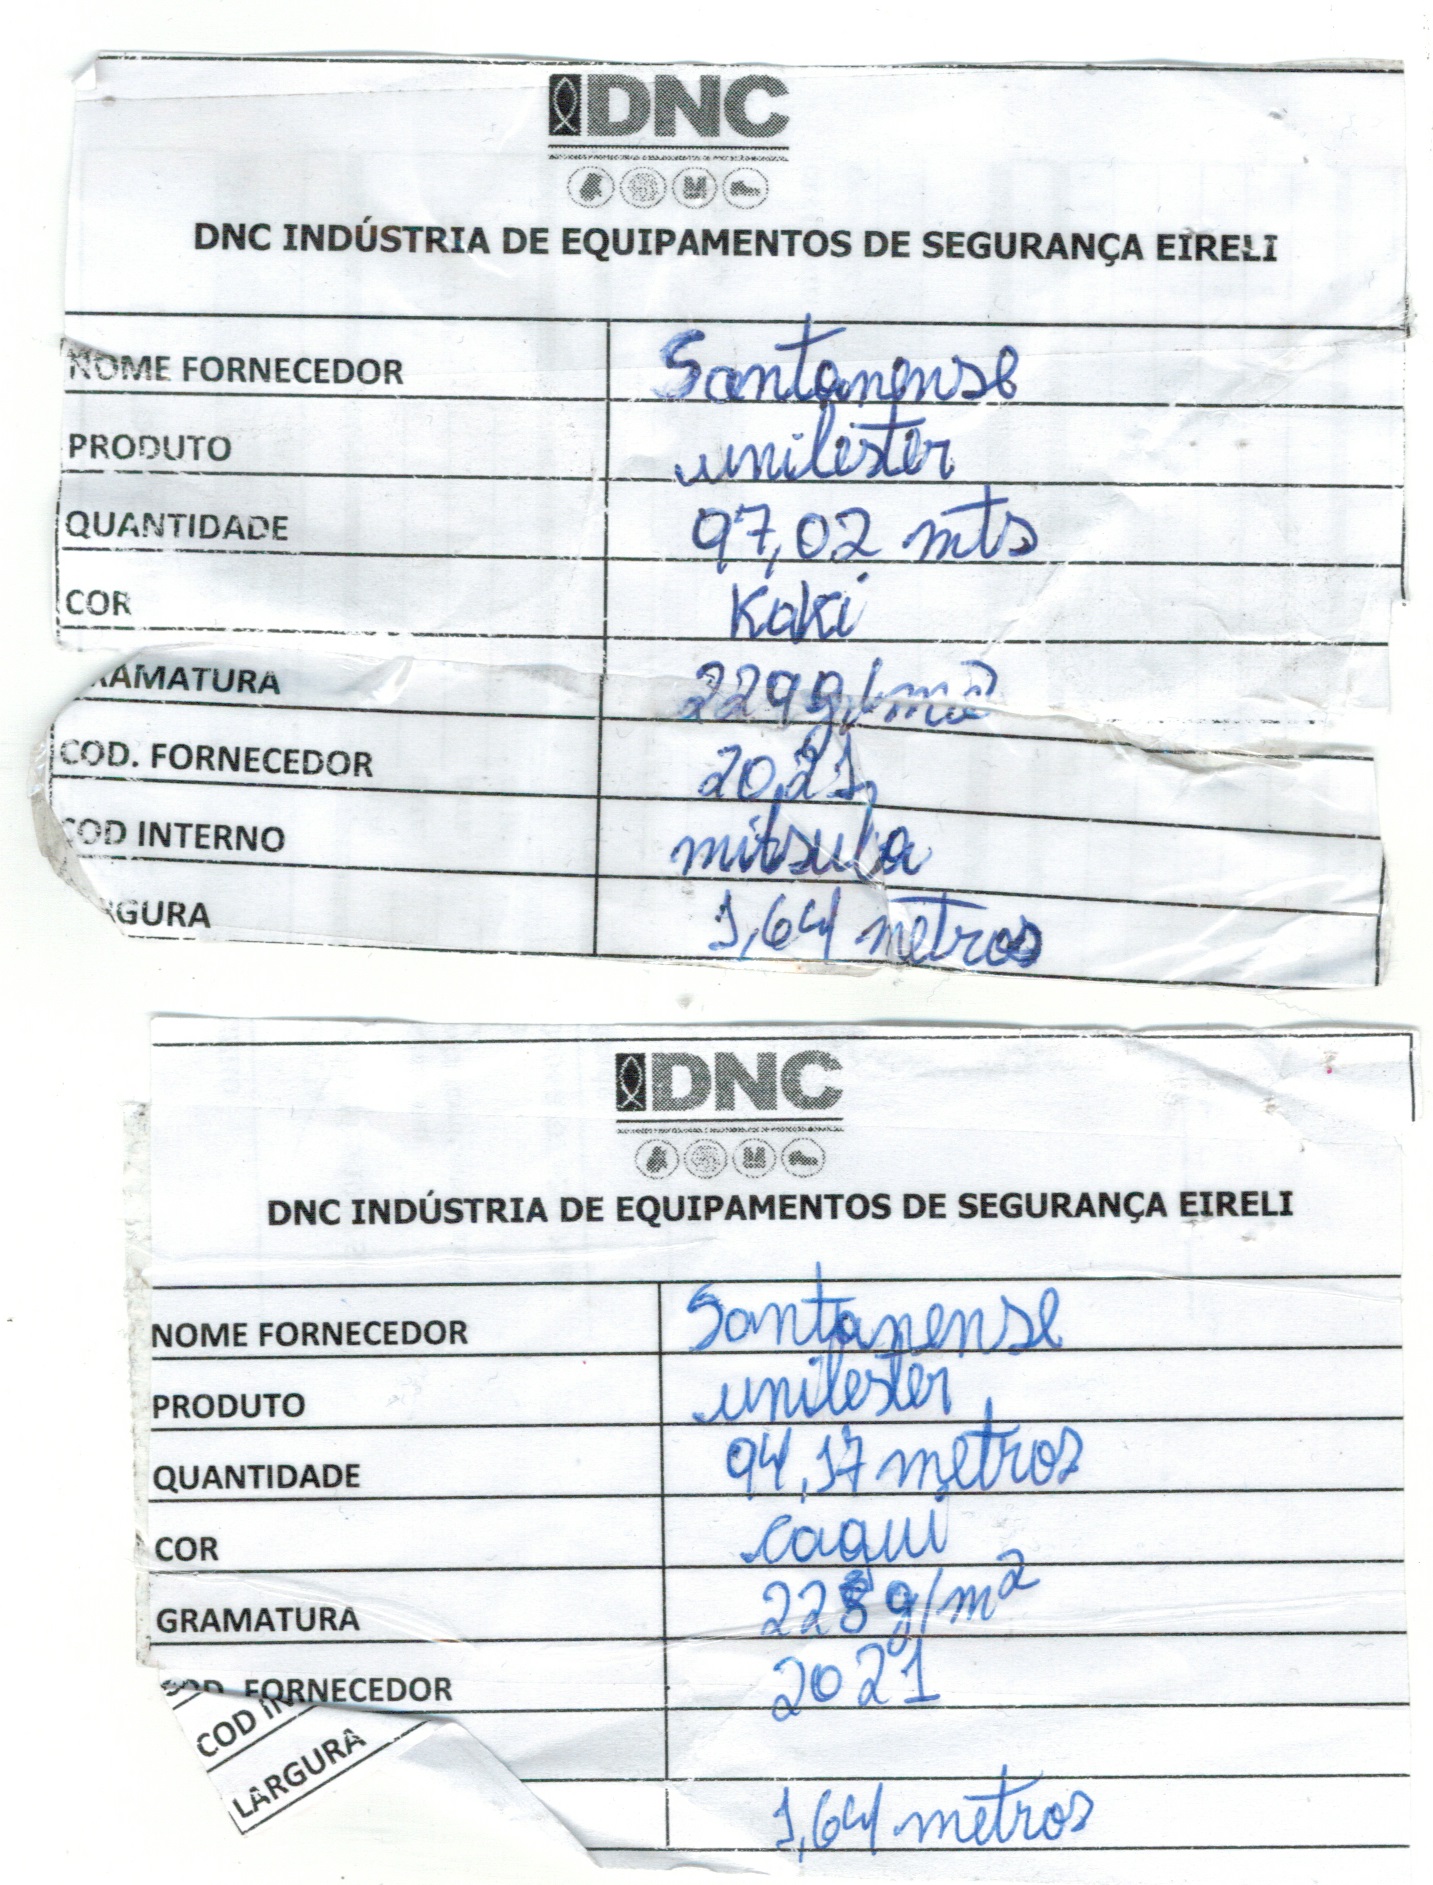 DNC
DNC INDÚSTRIA DE EQUIPAMENTOS DE SEGURANÇA EIRELI
NOME FORNECEDOR Santanense
PRODUTO unilester
QUANTIDADE 97,02 mts
COR Kaki
RAMATURA 229 g/m2
COD. FORNECEDOR 2021
COD INTERNO mitsuba
GURA 1,64 metros
DNC
DNC INDÚSTRIA DE EQUIPAMENTOS DE SEGURANÇA EIRELI
NOME FORNECEDOR Santanense
PRODUTO unilester
QUANTIDADE 94,17 metros
COR caqui
GRAMATURA 228 g/m2
COD. FORNECEDOR 2021
COD IN
LARGURA 1,64 metros